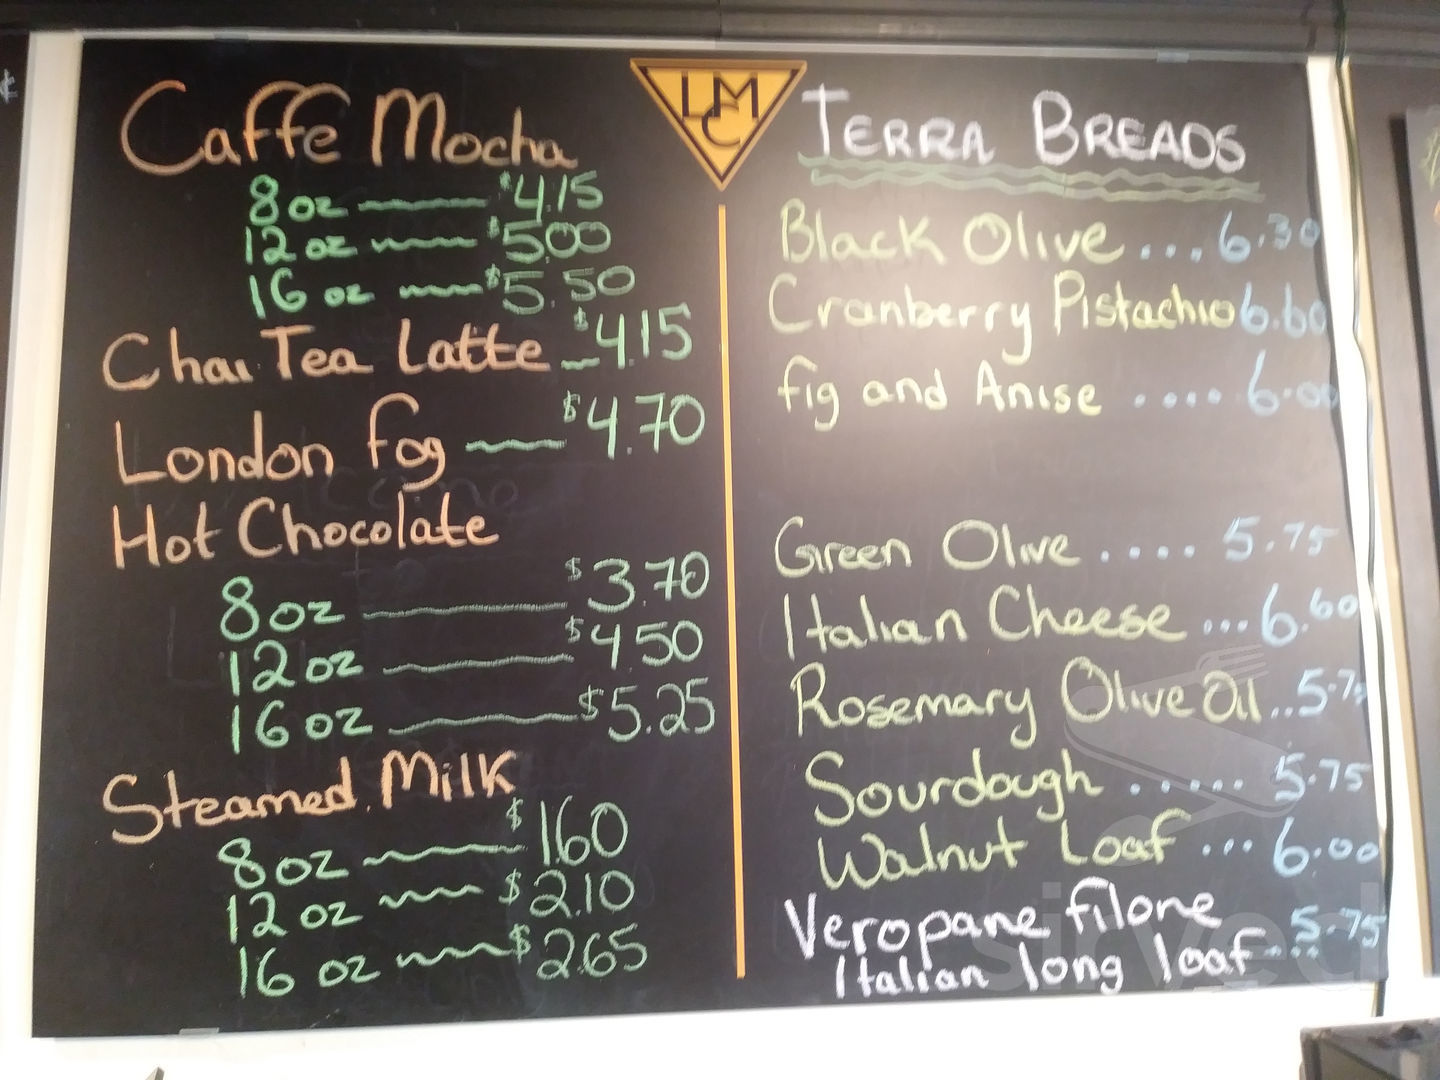 Caffe Mocha
8 oz $4.15
12 oz $5.00
16 oz $5.50
Chai Tea Latte $4.15
London Fog $4.70
Hot Chocolate
8 oz $3.70
12 oz $4.50
16 oz $5.25
Steamed Milk
8 oz $1.60
12 oz $2.10
16 oz $2.65
LMC
TERRA BREADS
Black Olive ... 6.30
Cranberry Pistachio 6.60
Fig and Anise .... 6.00
Green Olive .... 5.75
Italian Cheese ... 6.60
Rosemary Olive Oil .. 5.75
Sourdough ..... 5.75
Walnut Loaf ... 6.00
Veropane filone
Italian long loaf ... 5.75
sirved